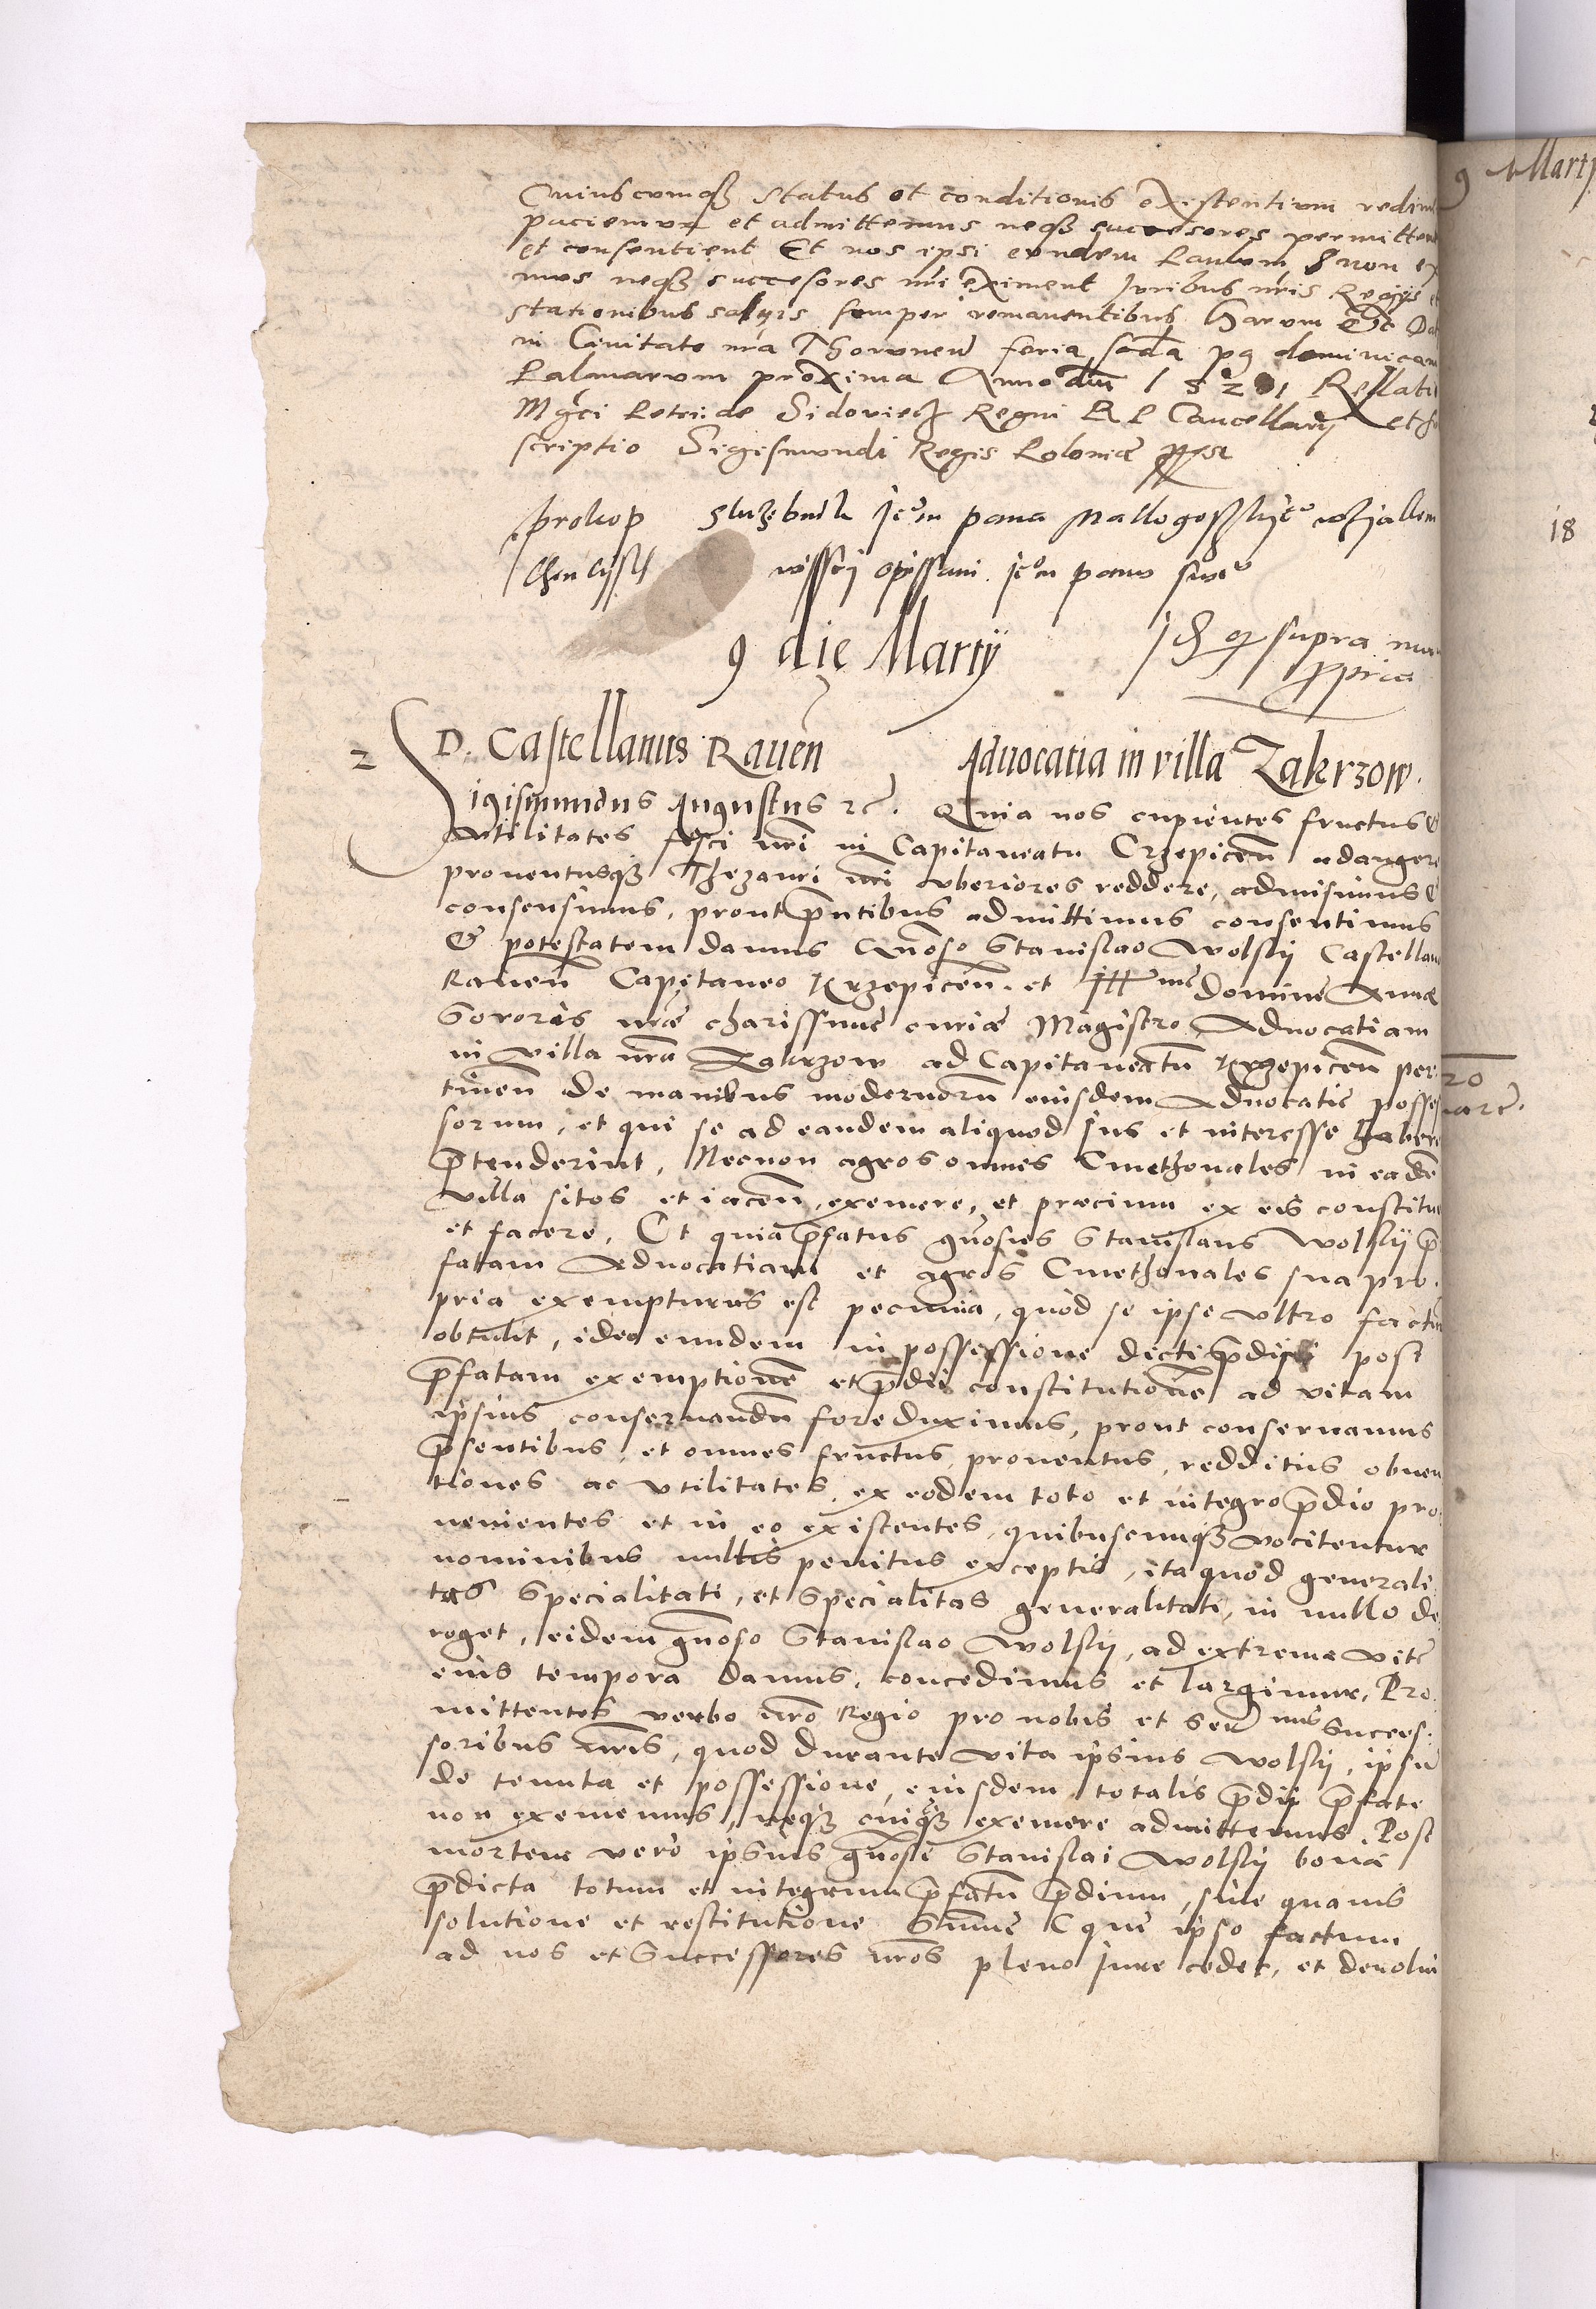 Cuiuscumqз status et conditionis existentium redim
paciemur et admittemus neqз successores permittent
et consentient Et nos ipsi eundem Pauum non ex
mus neqз succesores nri eximent Juribus nris Regijs et
stationibus saluis semper remanentibus Harum Etc Dat
in Ciuitate nra Thorunen feria scda pg dominicam
Palmarum proxima Anno dni 1521 Rellatio
Mgci Petri de Sidoviecz Regni P P Cancellarij et
scriptio Sigismundi Regis Polonie sst
prokop Sluzebnik Jeo m pana Mallogoskieo
then lysth wissej opissani jeo m panu sweo
9 die Martij
Id q supra man
ppria
2 D. Castellanus Rauen Aduocatia in villa Zakrzow.
Sigismundus Augustus zc. Quia nos cupientes fructus &
vtilitates fisci nri in Capitaneatu Crzepicen adaugere
prouentusqз Thezauri nri vberiores reddere, admisimus &
consensimus, prout pntibus admittimus consentimus
& potestatem damus Gnoso Stanislao Wolskij Castellano
Rauen Capitaneo Krzepicen. et Ill me Domine Annæ
Sororis nræ charissime curiæ Magistro, Aduocatiam
in villa nra Zakrzow ad Capitaneatu Krzepicen per
tinen de manibus modernoru eiusdem Aduocatie posses
sorum, et qui se ad eandem aliquod Jus et interesse habere
ptenderint, Necnon agros omnes Cmethonales in eade
villa sitos et iacen, exemere, et prædium ex eis constitue
et facere, Et quia pfatus gnosus Stanislaus Wolskij p
fatam Aduocatiam et agros Cmethonales sua pro.
pria exempturus est pecunia, quod se ipse vltro factur
obtulit, ideo eundem in possessione dicti pdij post
pfatam exemptione et pdii constitutione ad vitam
ipsius conseruandu fore duximus, prout conseruamus
psentibus, et omnes fructus, prouentus, redditus obuen
tiones ac vtilitates, ex eodem toto et integro pdio pro.
uenientes et in eo existentes, quibuscunqз vocitentur
nominibus nullis penitus exceptis, ita quod generali
tas Specialitati, et Specialitas generalitati, in nullo de
roget, eidem gnoso Stanislao Wolskij, ad extrema vite
eius tempora damus, concedimus et largimur, Pro.
mittentes verbo nro Regio pro nobis et Ser mis Succes.
soribus nris, quod durante vita ipsius Wolskij, ipsu
de tenuta et possessione, eiusdem totalis pdij pfate
non exememus, neqз cuiqз exemere admittemus. Post
mortem vero ipsius gnosi Stanislai Wolskij bona
pdicta totum et integrum pfatu pdium, sine quauis
solutione et restitutione Summe C que ipso factum
ad nos et Successores nros pleno Jure cedet, et deuolui
9 Martij
18